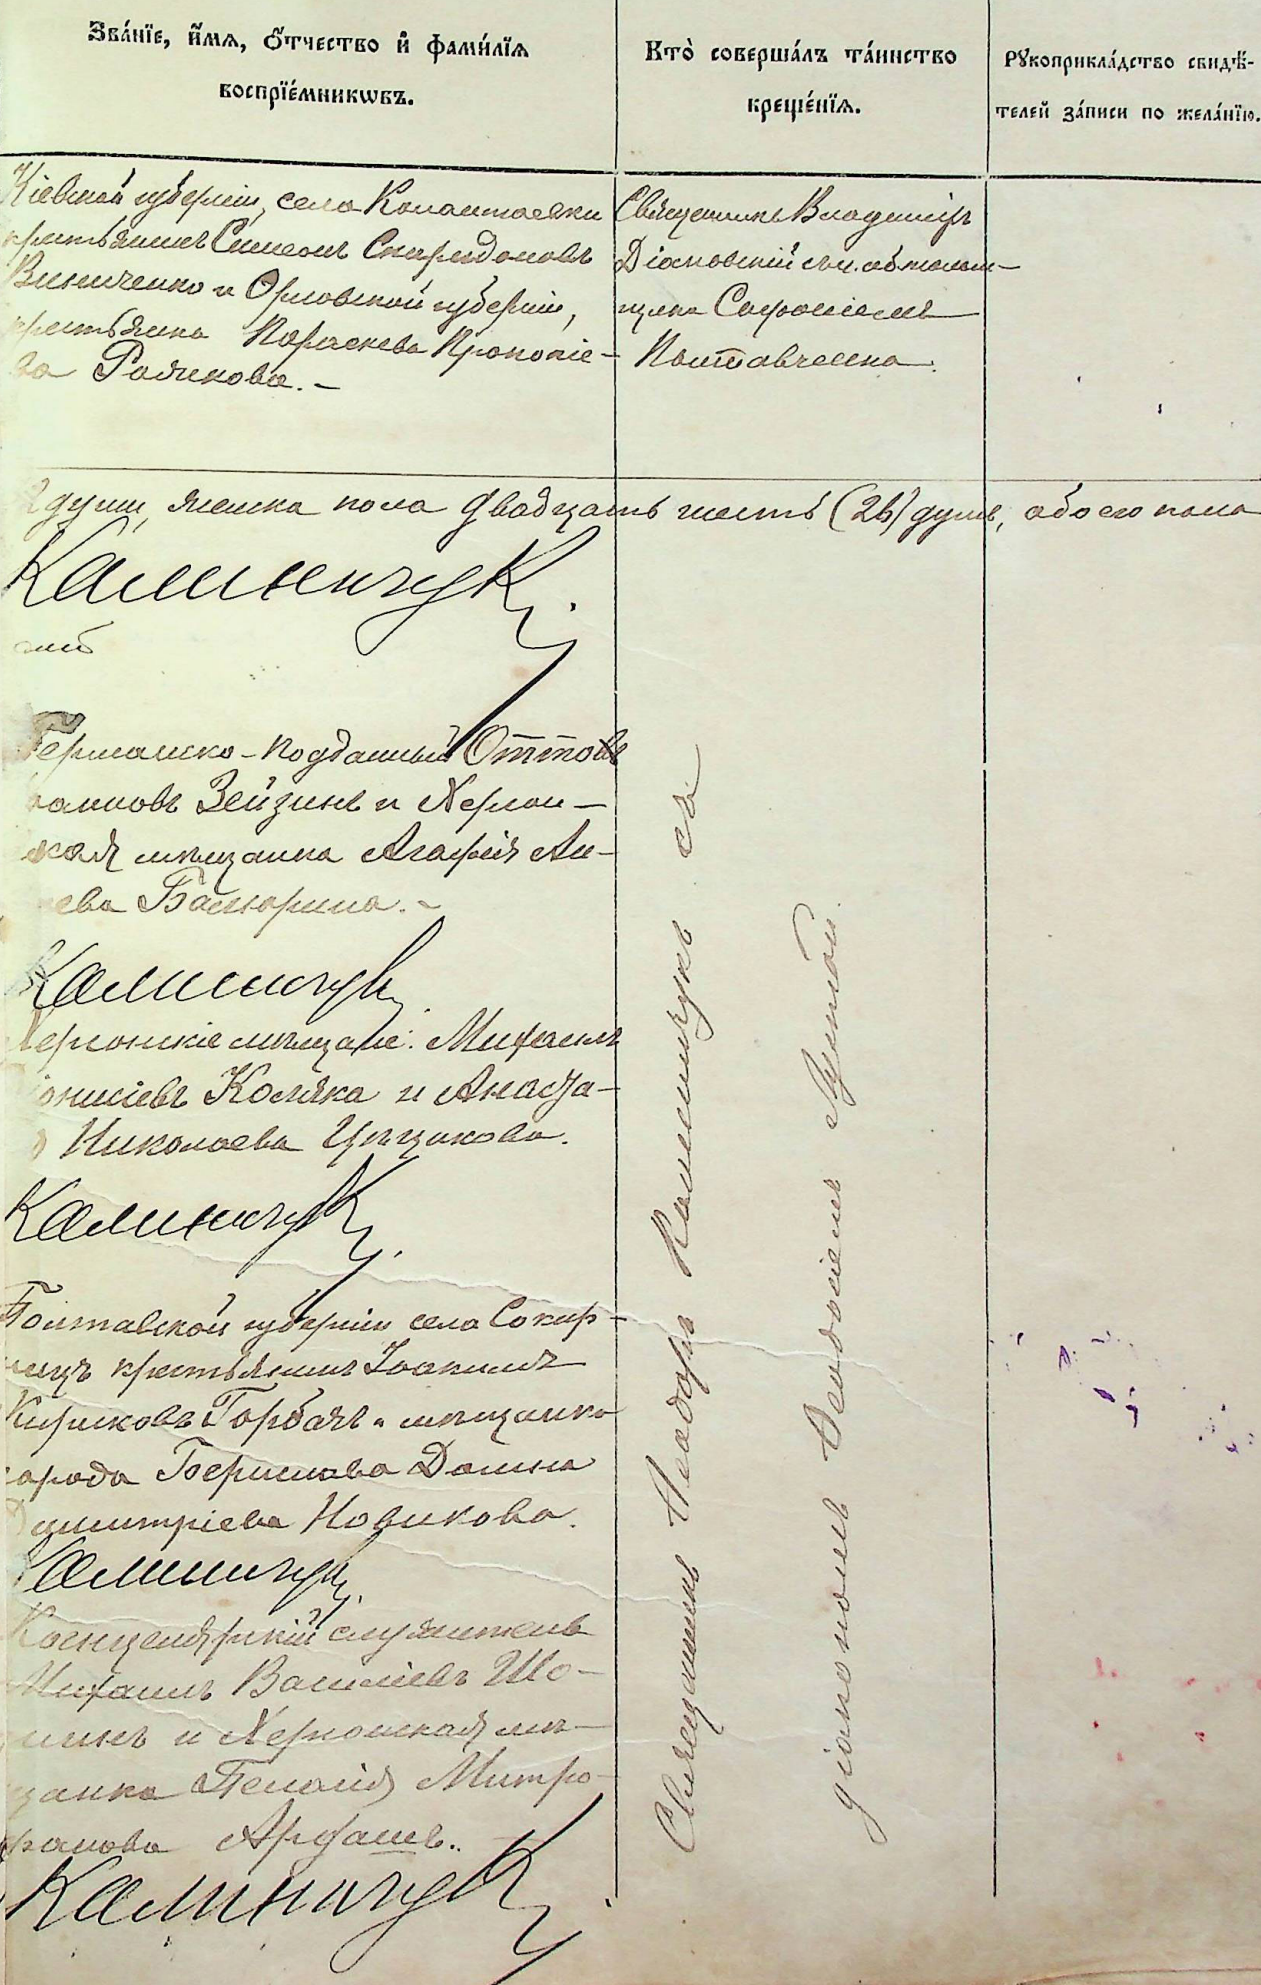 Зва́нїе, и҆́мѧ, ѻ҆́тчество и҆ фами́лїѧ
воспрїе́мникѡвъ.
Кто̀ соверша́лъ та́инство
креще́нїѧ.
Рꙋкоприкла́дство свидѣ́-
телей за́писи по жела́нїю.
Кіевской губерніи, села
крестьянинъ Симеонъ Спиридоновъ
Винниченко и Орловской губерніи,
крестьянка Параскева Прокопіе-
ва
Священникъ Владиміръ
съ псаломщи-
щикомъ Софоніемъ
души, женска пола двадцать шесть (26) душъ, обоего пола
Калинчук
Германско-подданный Оттовъ
Зейзинъ и Херсон-
ская мѣщанка Агафія Ан-
ева
Калинчук
Херсонскіе мѣщане: Михаилъ
Діонисіевъ Коляка и Анаста-
Николаева
Калинчук
Полтавской губерніи села Сокир-
инцъ крестьянинъ Іоакимъ
Кириковъ Горбачъ и мѣщанка
города Берислава Домна
Димитріева Новикова.
Калинчук
Канцелярскій служитель
Михаилъ Василіевъ Шо-
и Херсонская мѣ-
щанка Пелагія Митро-
фанова
Калинчук
Священникъ Ѳеодоръ Калинчукъ съ
діакономъ Ѳеодосіемъ